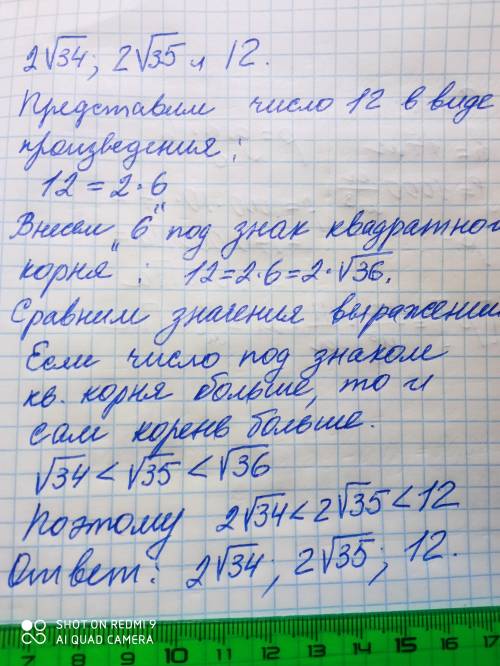 2√34; 2√35 и 12.
Представим число 12 в виде
произведения:
12 = 2·6
Внесем „6" под знак квадратного
корня: 12=2·6=2·√36.
Сравним значения выражении
Если число под знаком
кв. корня больше, то и
сам корень больше.
√34 < √35 < √36
Поэтому 2√34 < 2√35 < 12
Ответ: 2√34; 2√35; 12.
SHOT ON REDMI 9
AI QUAD CAMERA
7 8 9 10 11 12 13 14 15 16 17